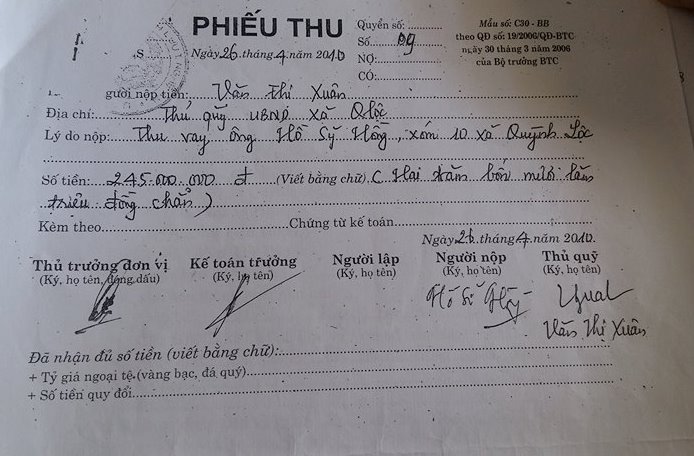 PHIẾU THU
Quyển số:
Mẫu số: C30 - BB
Số 09
theo QĐ số: 19/2006/QĐ-BTC
ngày 30 tháng 3 năm 2006
của Bộ trưởng BTC
S Ngày 26 tháng 4 năm 2010
NỢ:
CÓ:
gười nộp tiền: Văn Thị Xuân
Địa chỉ: Thủ quỹ UBND xã Q Lộc
Lý do nộp: Thu vay ông Hồ Sỹ Hồng, xóm 10 xã Quỳnh Lộc
Số tiền: 245.000.000 đ (Viết bằng chữ) (Hai trăm bốn mươi lăm
triệu đồng chẵn)
Kèm theo Chứng từ kế toán.
Ngày 26 tháng 4 năm 2010.
Thủ trưởng đơn vị Kế toán trưởng Người lập Người nộp Thủ quỹ
(Ký, họ tên, đóng dấu) (Ký, họ tên) (Ký, họ tên) (Ký, họ tên) (Ký, họ tên)
Hồ Sĩ
Văn Thị Xuân
Đã nhận đủ số tiền (viết bằng chữ):
+ Tỷ giá ngoại tệ (vàng bạc, đá quý)
+ Số tiền quy đổi